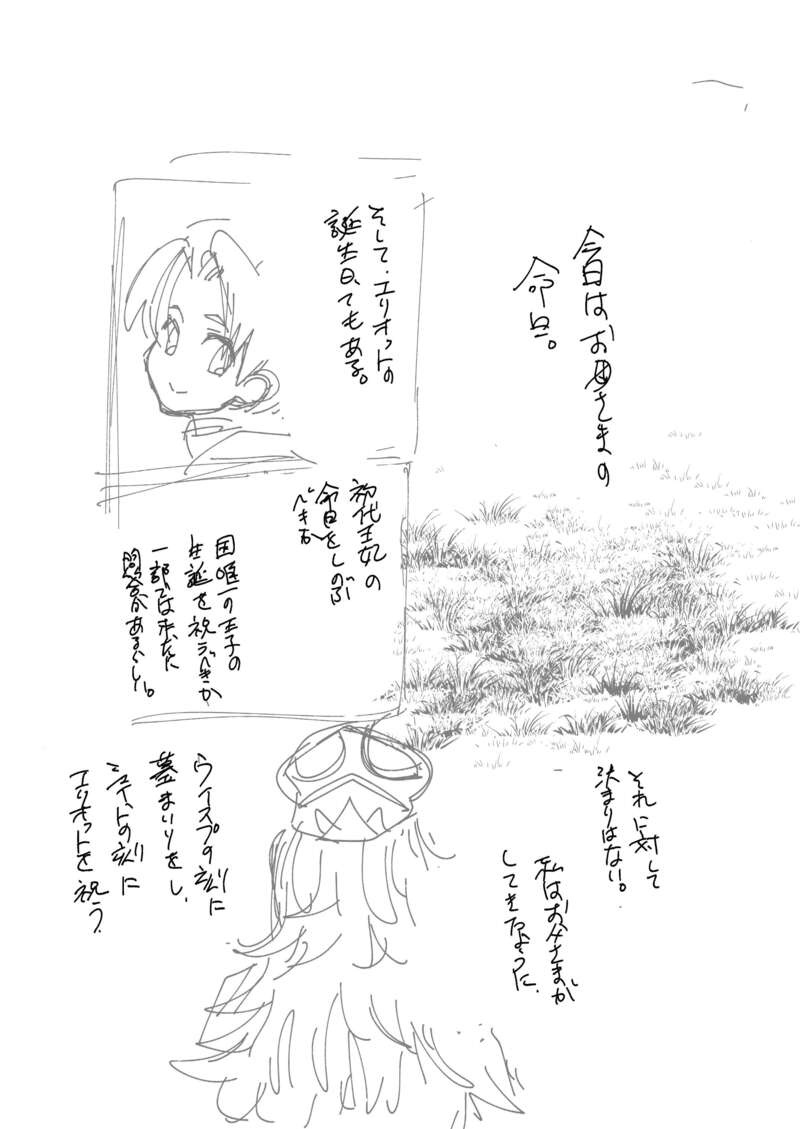 今日はお母さまの
命日。
そして、エリオットの
誕生日でもある。
初代王妃の
命日をしのぶ
べきか
国唯一の王子の
生誕を祝うべきか
一部では
問答があるらしい。
それに対して
決まりはない。
私はお父さまが
してきたように、
ウイスプの刻に
墓まいりをし、
の刻に
エリオットを祝う。